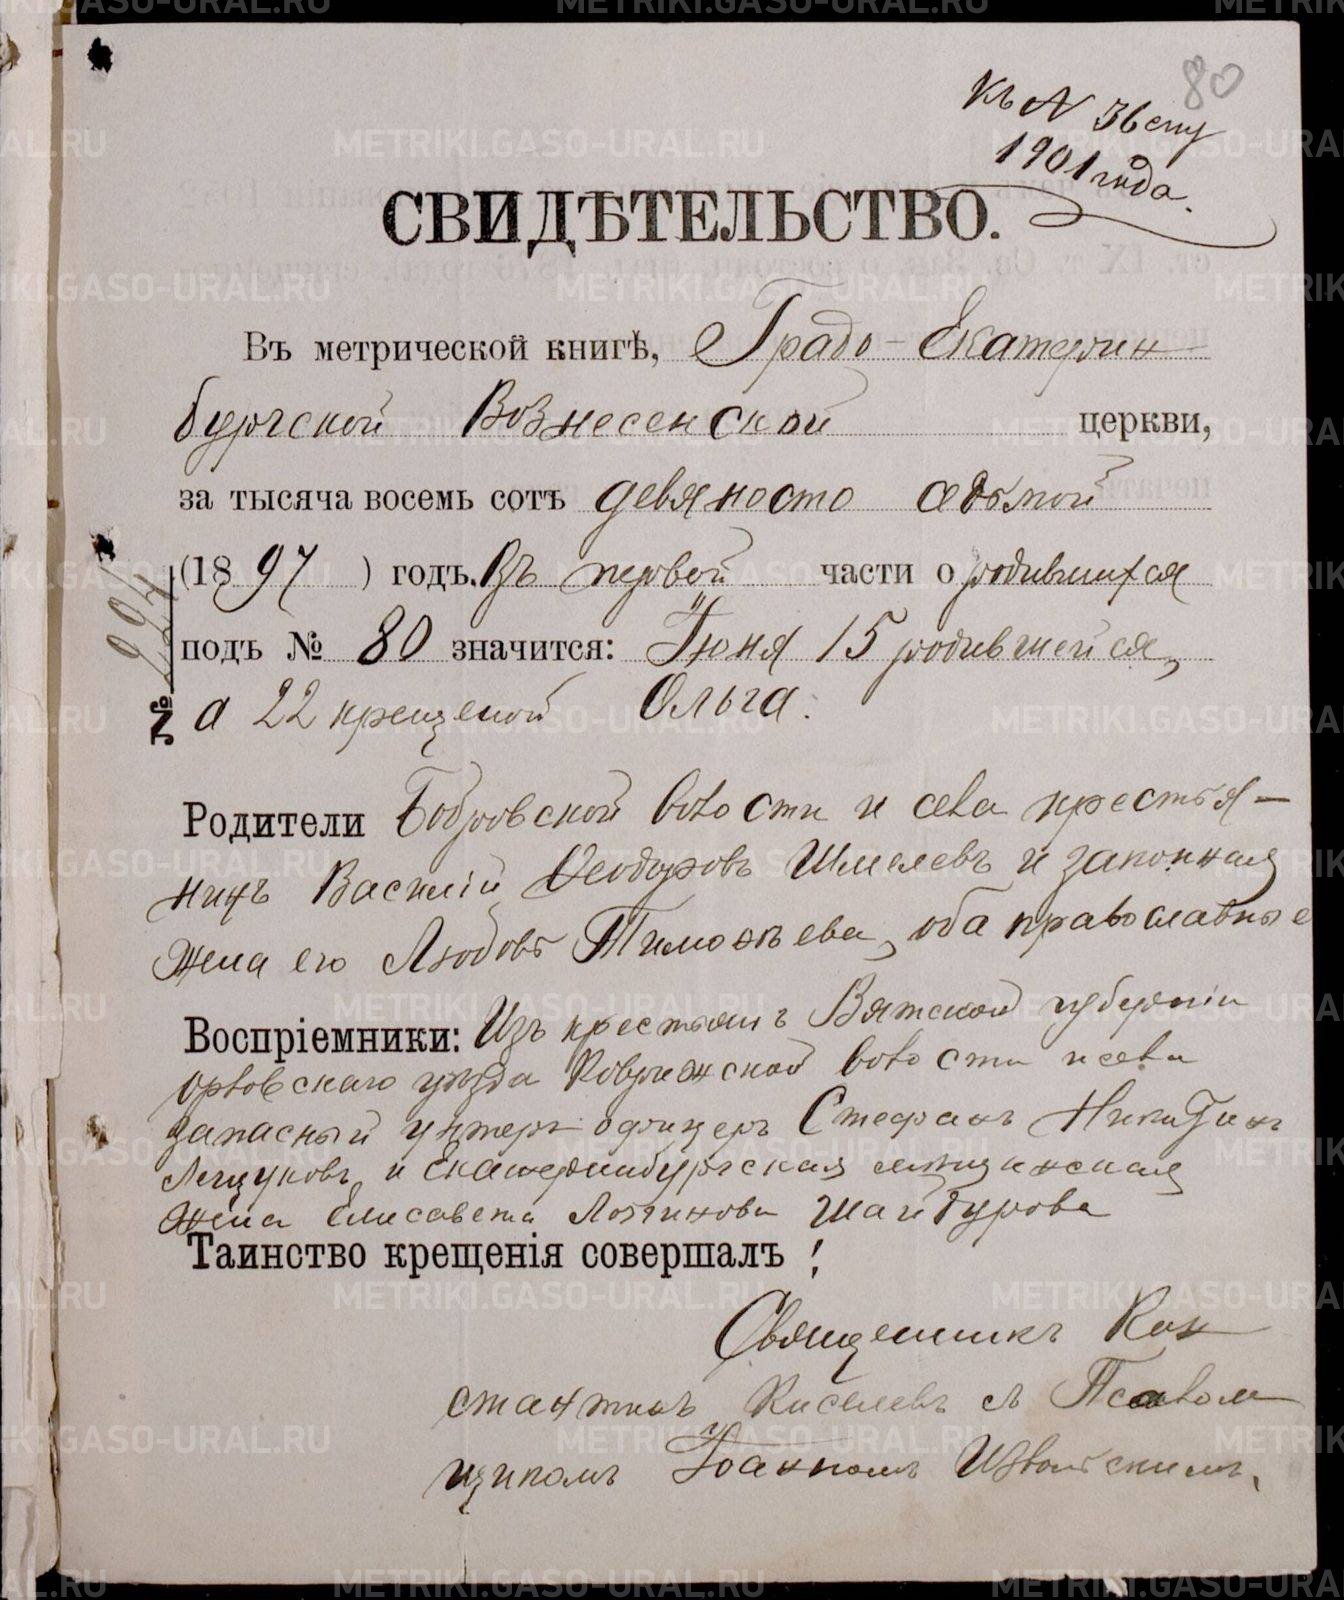 80
Къ № 36 спу
1901 года.
СВИДѢТЕЛЬСТВО.
Въ метрической книгѣ, Градо-Екатерин
бургской Вознесенской церкви,
за тысяча восемь сотъ девяносто седьмой
(1897) годъ. Въ первой части о родившихся
подъ № 80 значится: Іюня 15 родившейся,
а 22 крещеной Ольга.
№ 224
Родители Бобровской волости и села крестья-
нинъ Василій Ѳеодоровъ Шмелевъ и законная
жена его Любовь Тимоѳеева, оба православные
Воспріемники: Изъ крестьянъ Вятской губерніи
Орловскаго уѣзда села
запасный унтеръ-офицеръ Стефанъ Никитинъ
и Екатеринбургская мѣщанская
жена Елисавета Логинова Шайдурова
Таинство крещенія совершалъ:
Священникъ Кон
стантинъ Киселевъ съ Псалом
щикомъ Іоанномъ
METRIKI.GASO-URAL.RU